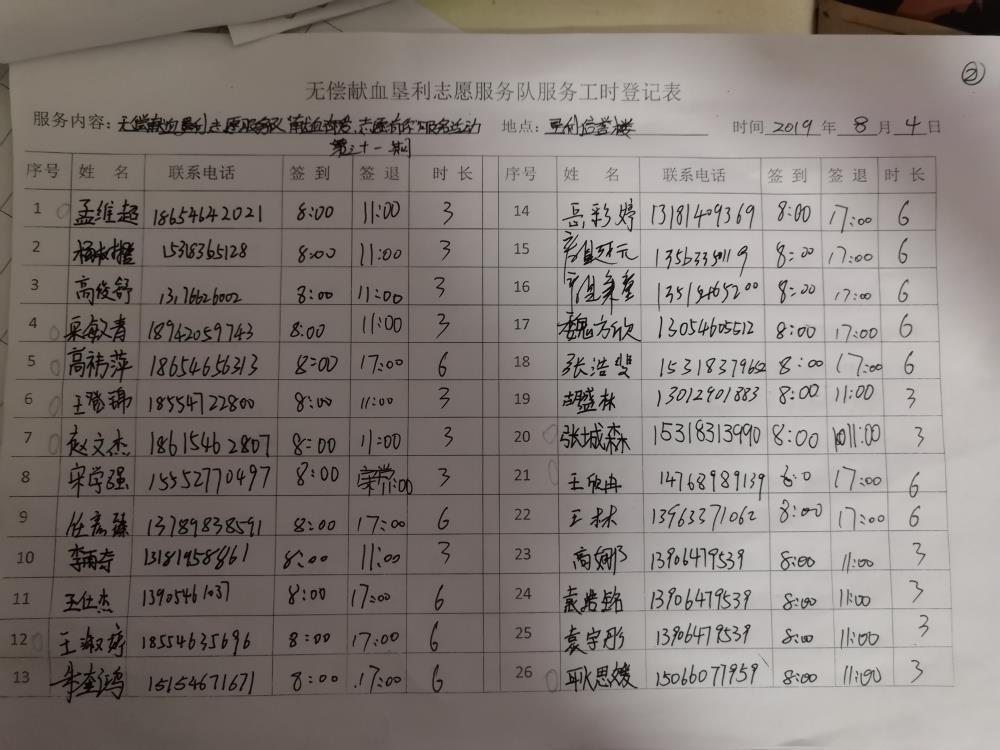 ②
无偿献血垦利志愿服务队服务工时登记表
服务内容: 无偿献血垦利志愿服务队"献血有爱,志愿有你"服务活动 地点: 垦利信誉楼 时间 2019 年 8 月 4 日
第三十一期
序号 姓 名 联系电话 签 到 签 退 时 长 序号 姓 名 联系电话 签 到 签 退 时 长
1 孟维超 18654642021 8:00 11:00 3 14 岳彩婷 13181409369 8:00 17:00 6
2 15318365128 8:00 11:00 3 15 13563350119 8:00 17:00 6
3 高俊舒 13176626002 8:00 11:00 3 16 8:00 17:00 6
4 敏青 18962059743 8:00 11:00 3 17 魏方欣 13054605512 8:00 17:00 6
5 高祎萍 18654656313 8:00 17:00 6 18 张浩斐 15318379652 8:00 17:00 6
6 王登锦 18554722800 8:00 11:00 3 19 胡盛林 13012901883 8:00 11:00 3
7 赵文杰 18615462807 8:00 11:00 3 20 张城森 15318313990 8:00 11:00 3
8 宋学强 15552770497 8:00 11:00 3 21 王欣冉 14768989139 8:0 17:00 6
9 任彦臻 13789838591 8:00 17:00 6 22 王林 13963371062 8:00 17:00 6
10 李雨奇 13181958861 8:00 11:00 3 23 高娜 13906479539 8:00 11:00 3
11 王仕杰 13905461037 8:00 17:00 6 24 袁浩铭 13906479539 8:00 11:00 3
12 王淑婷 18554635696 8:00 17:00 6 25 袁宇彤 13906479539 8:00 11:00 3
13 朱奎鸿 15154671671 8:00 17:00 6 26 耿思媛 15066077959 8:00 11:00 3